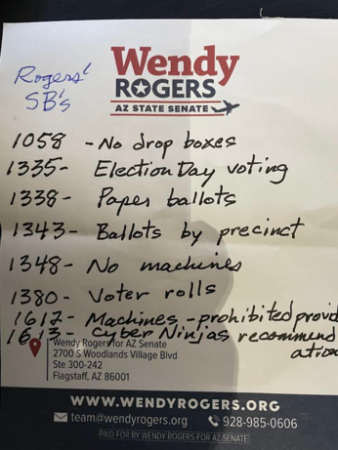 Wendy
ROGERS
AZ STATE SENATE
Rogers'
SB's
1058 - No drop boxes
1335- Election Day voting
1338- Paper ballots
1343- Ballots by precinct
1348- No machines
1380- Voter rolls
1612- Machines - prohibited provid
1613- Cyber Ninjas recommend
ation
Wendy Rogers for AZ Senate
2700 S Woodlands Village Blvd
Ste 300-242
Flagstaff, AZ 86001
WWW.WENDYROGERS.ORG
team@wendyrogers.org 928-985-0606
PAID FOR BY WENDY ROGERS FOR AZ SENATE